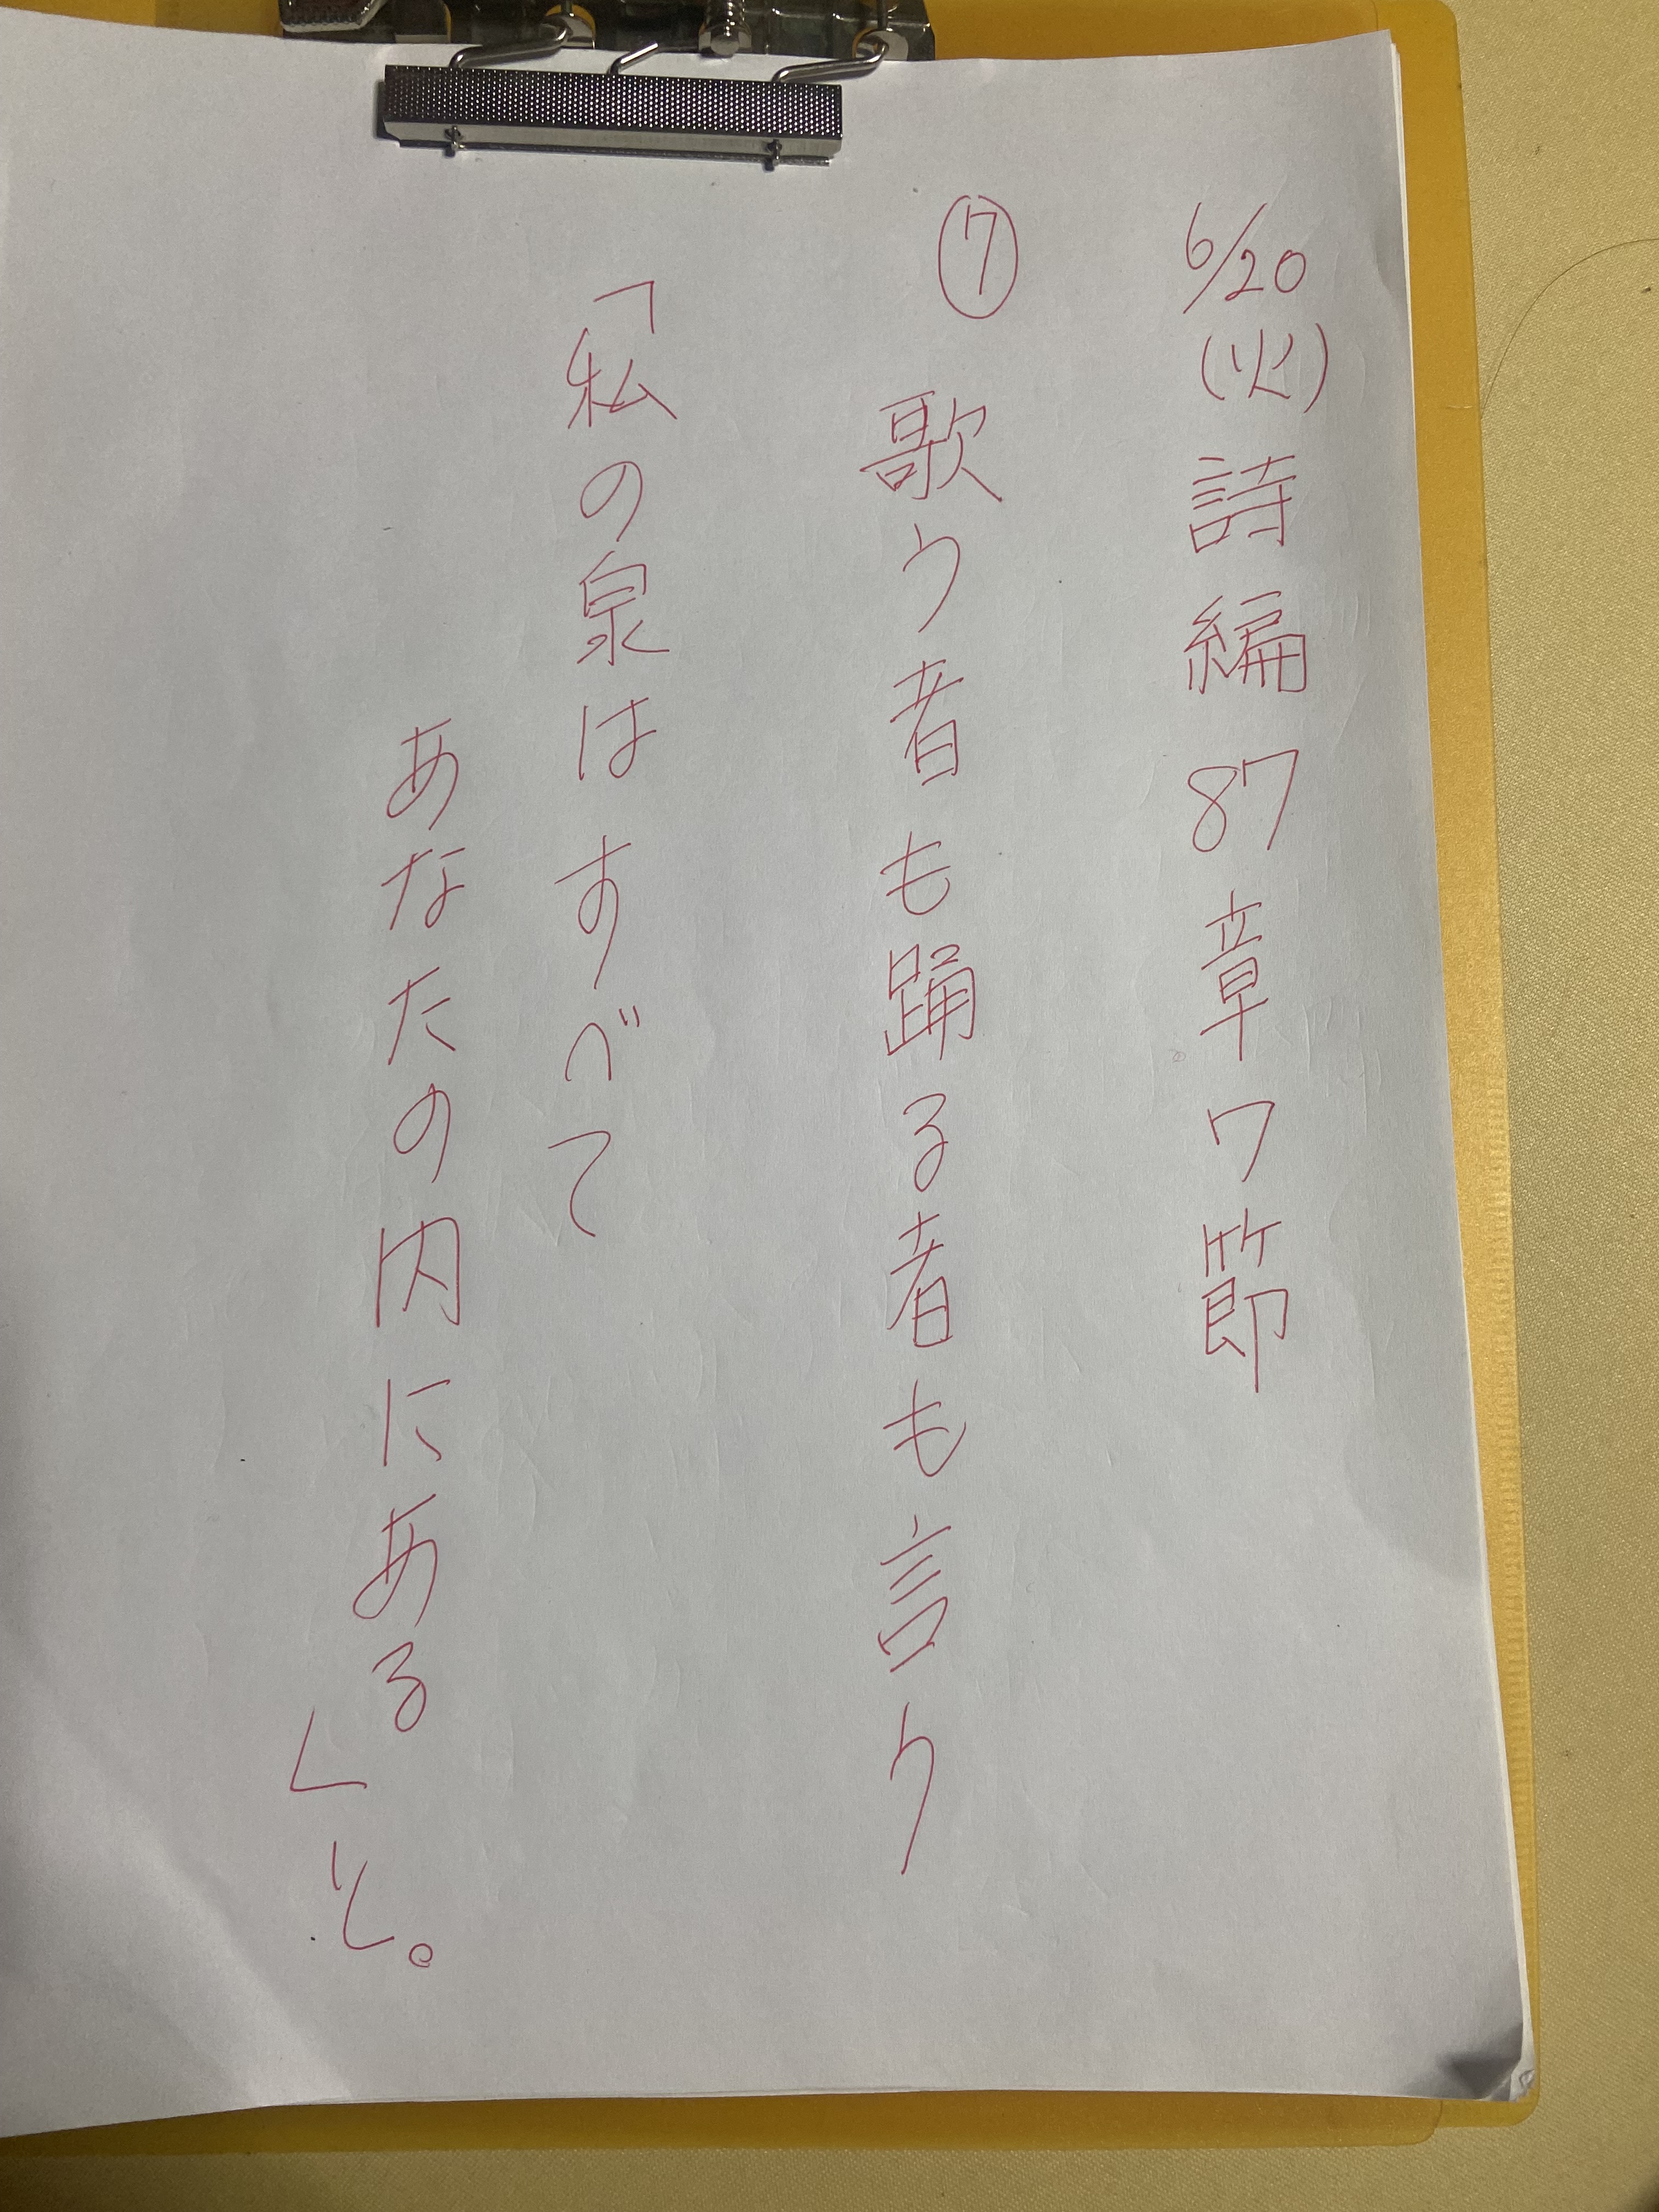 6/20(火)詩編87章7節
⑦ 歌う者も踊る者も言う
「私の泉はすべて
あなたの内にある」と。